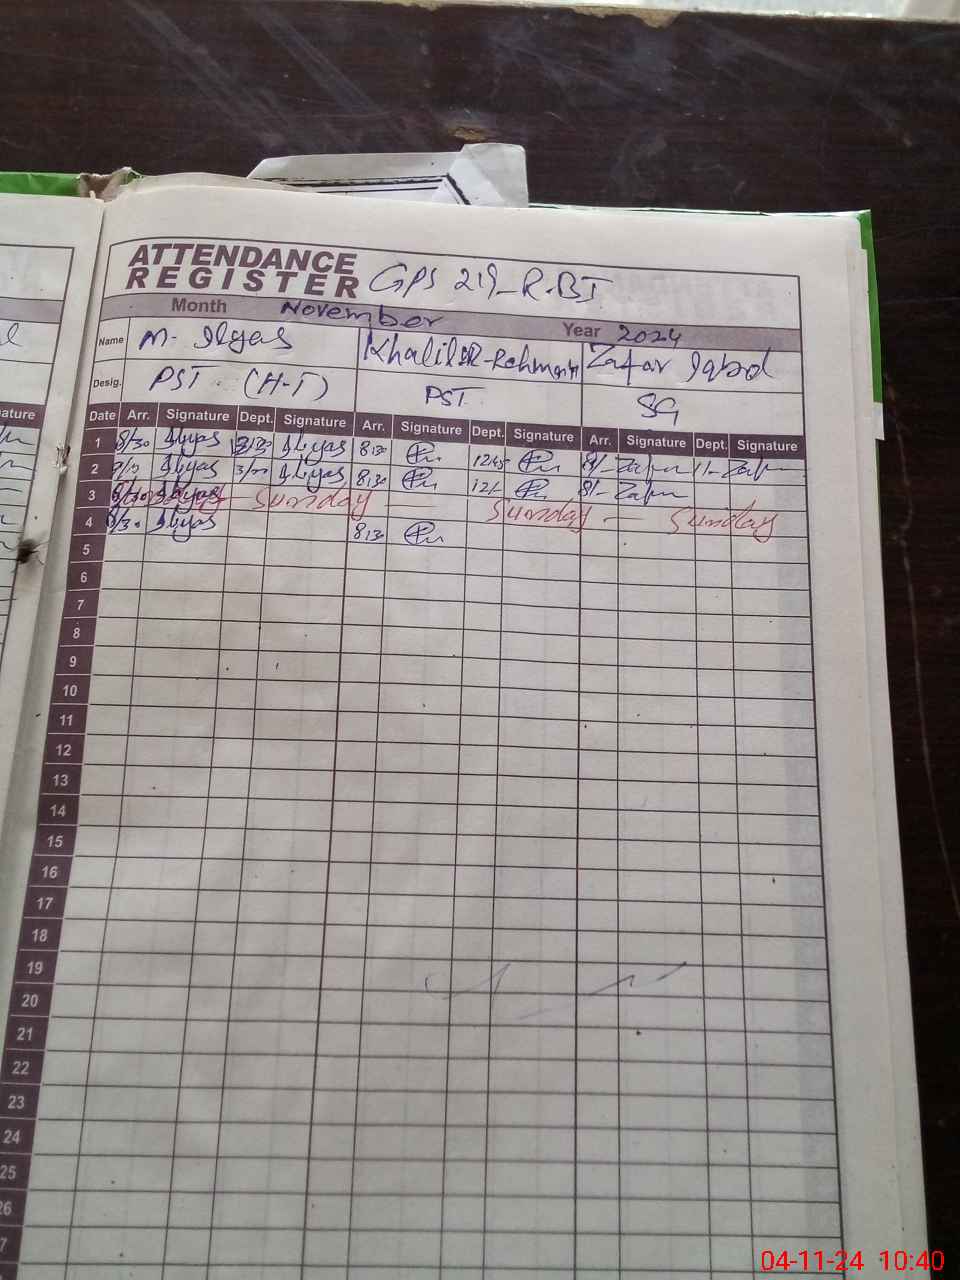 ATTENDANCE
REGISTER GPS 219-R.BI
Month November Year 2024
Name M. Ilyas Khalil Ur-Rehman Zafar Iqbal
Desig. PST (H-T) PST SG
ature Date Arr. Signature Dept. Signature Arr. Signature Dept. Signature Arr. Signature Dept. Signature
1 8/30 Ilyas Ilyas 8:30 12:45 8/- Zafar 11- Zafar
2 Ilyas Ilyas 8:30 12/- 8/- Zafar
3 Ilyas Sunday Sunday Sunday
4 8/30 Ilyas 8:30
5
6
7
8
9
10
11
12
13
14
15
16
17
18
19
20
21
22
23
24
25
26
7
04-11-24 10:40